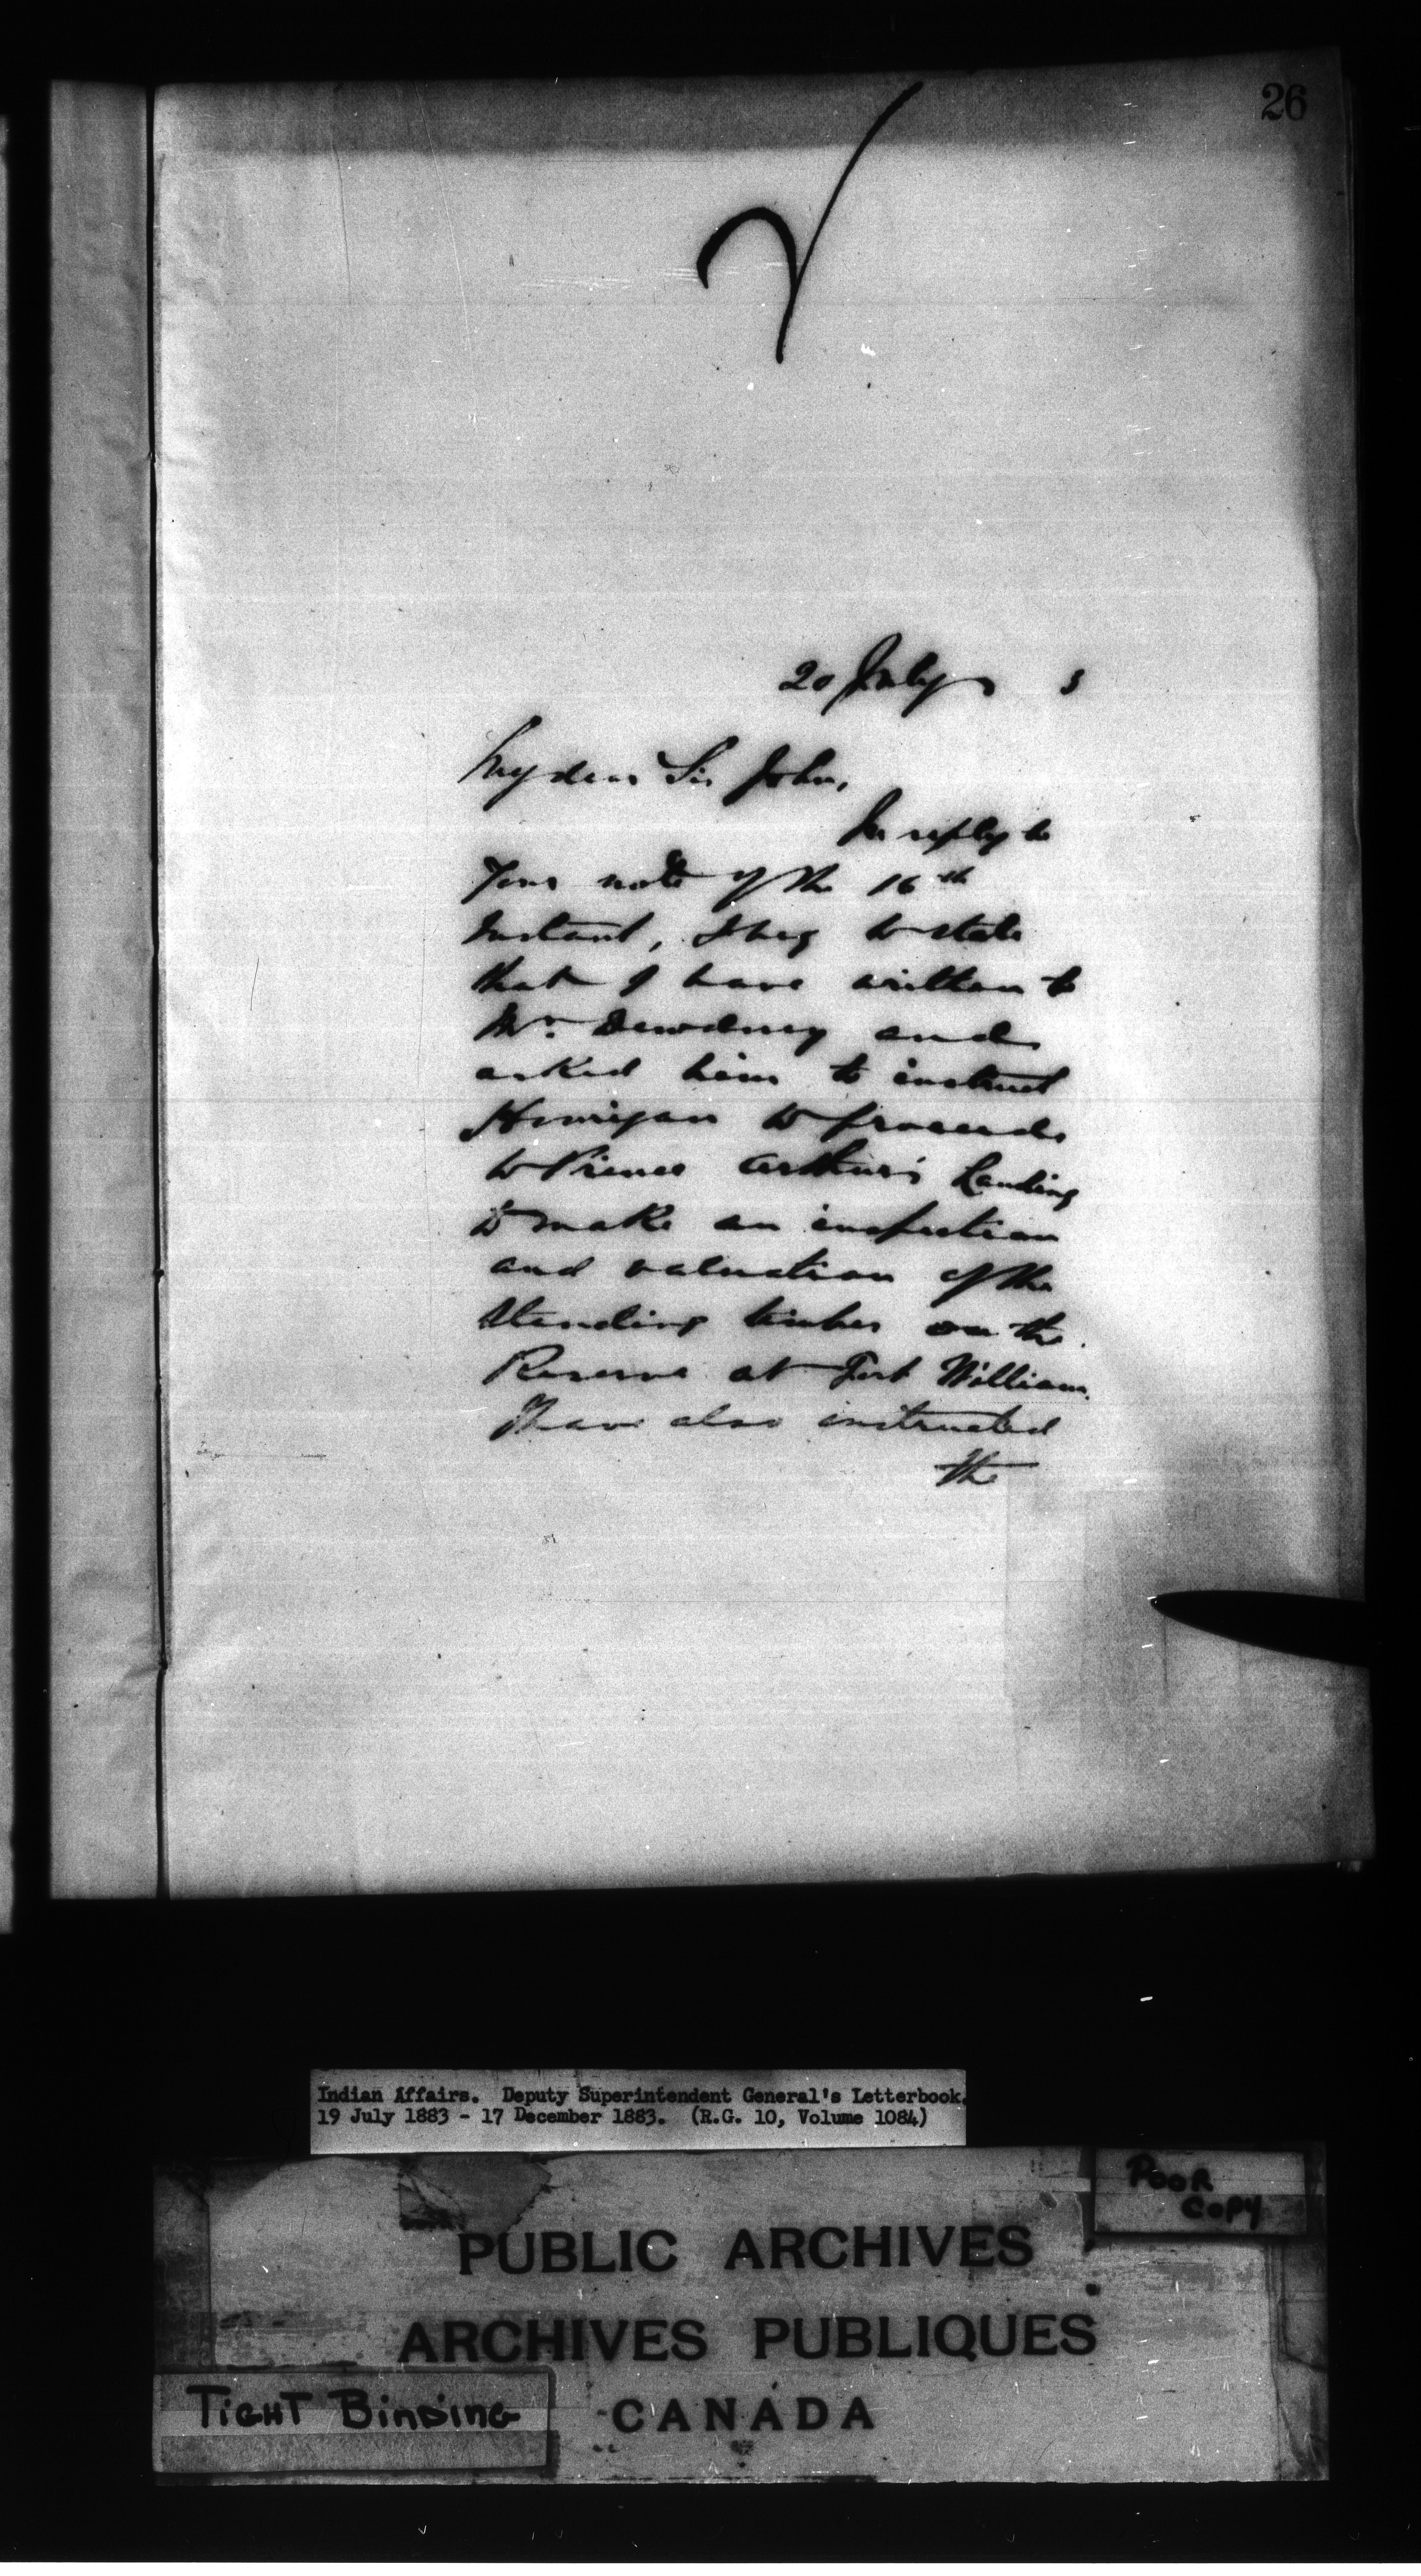 26
20 July 3
My dear Sir John,
In reply to
Your note of the 16th
Instant, I beg to state
that I have written to
Mr. Dewdney and
asked him to instruct
to proceed
to Prince Arthur's Landing
to make an inspection
and valuation of the
standing timber on the
Reserve at Fort William.
I have also instructed
the
Indian Affairs. Deputy Superintendent General's Letterbook.
19 July 1883 - 17 December 1883. (R.G. 10, Volume 1084)
POOR
COPY
PUBLIC ARCHIVES
ARCHIVES PUBLIQUES
TIGHT BINDING
CANADA